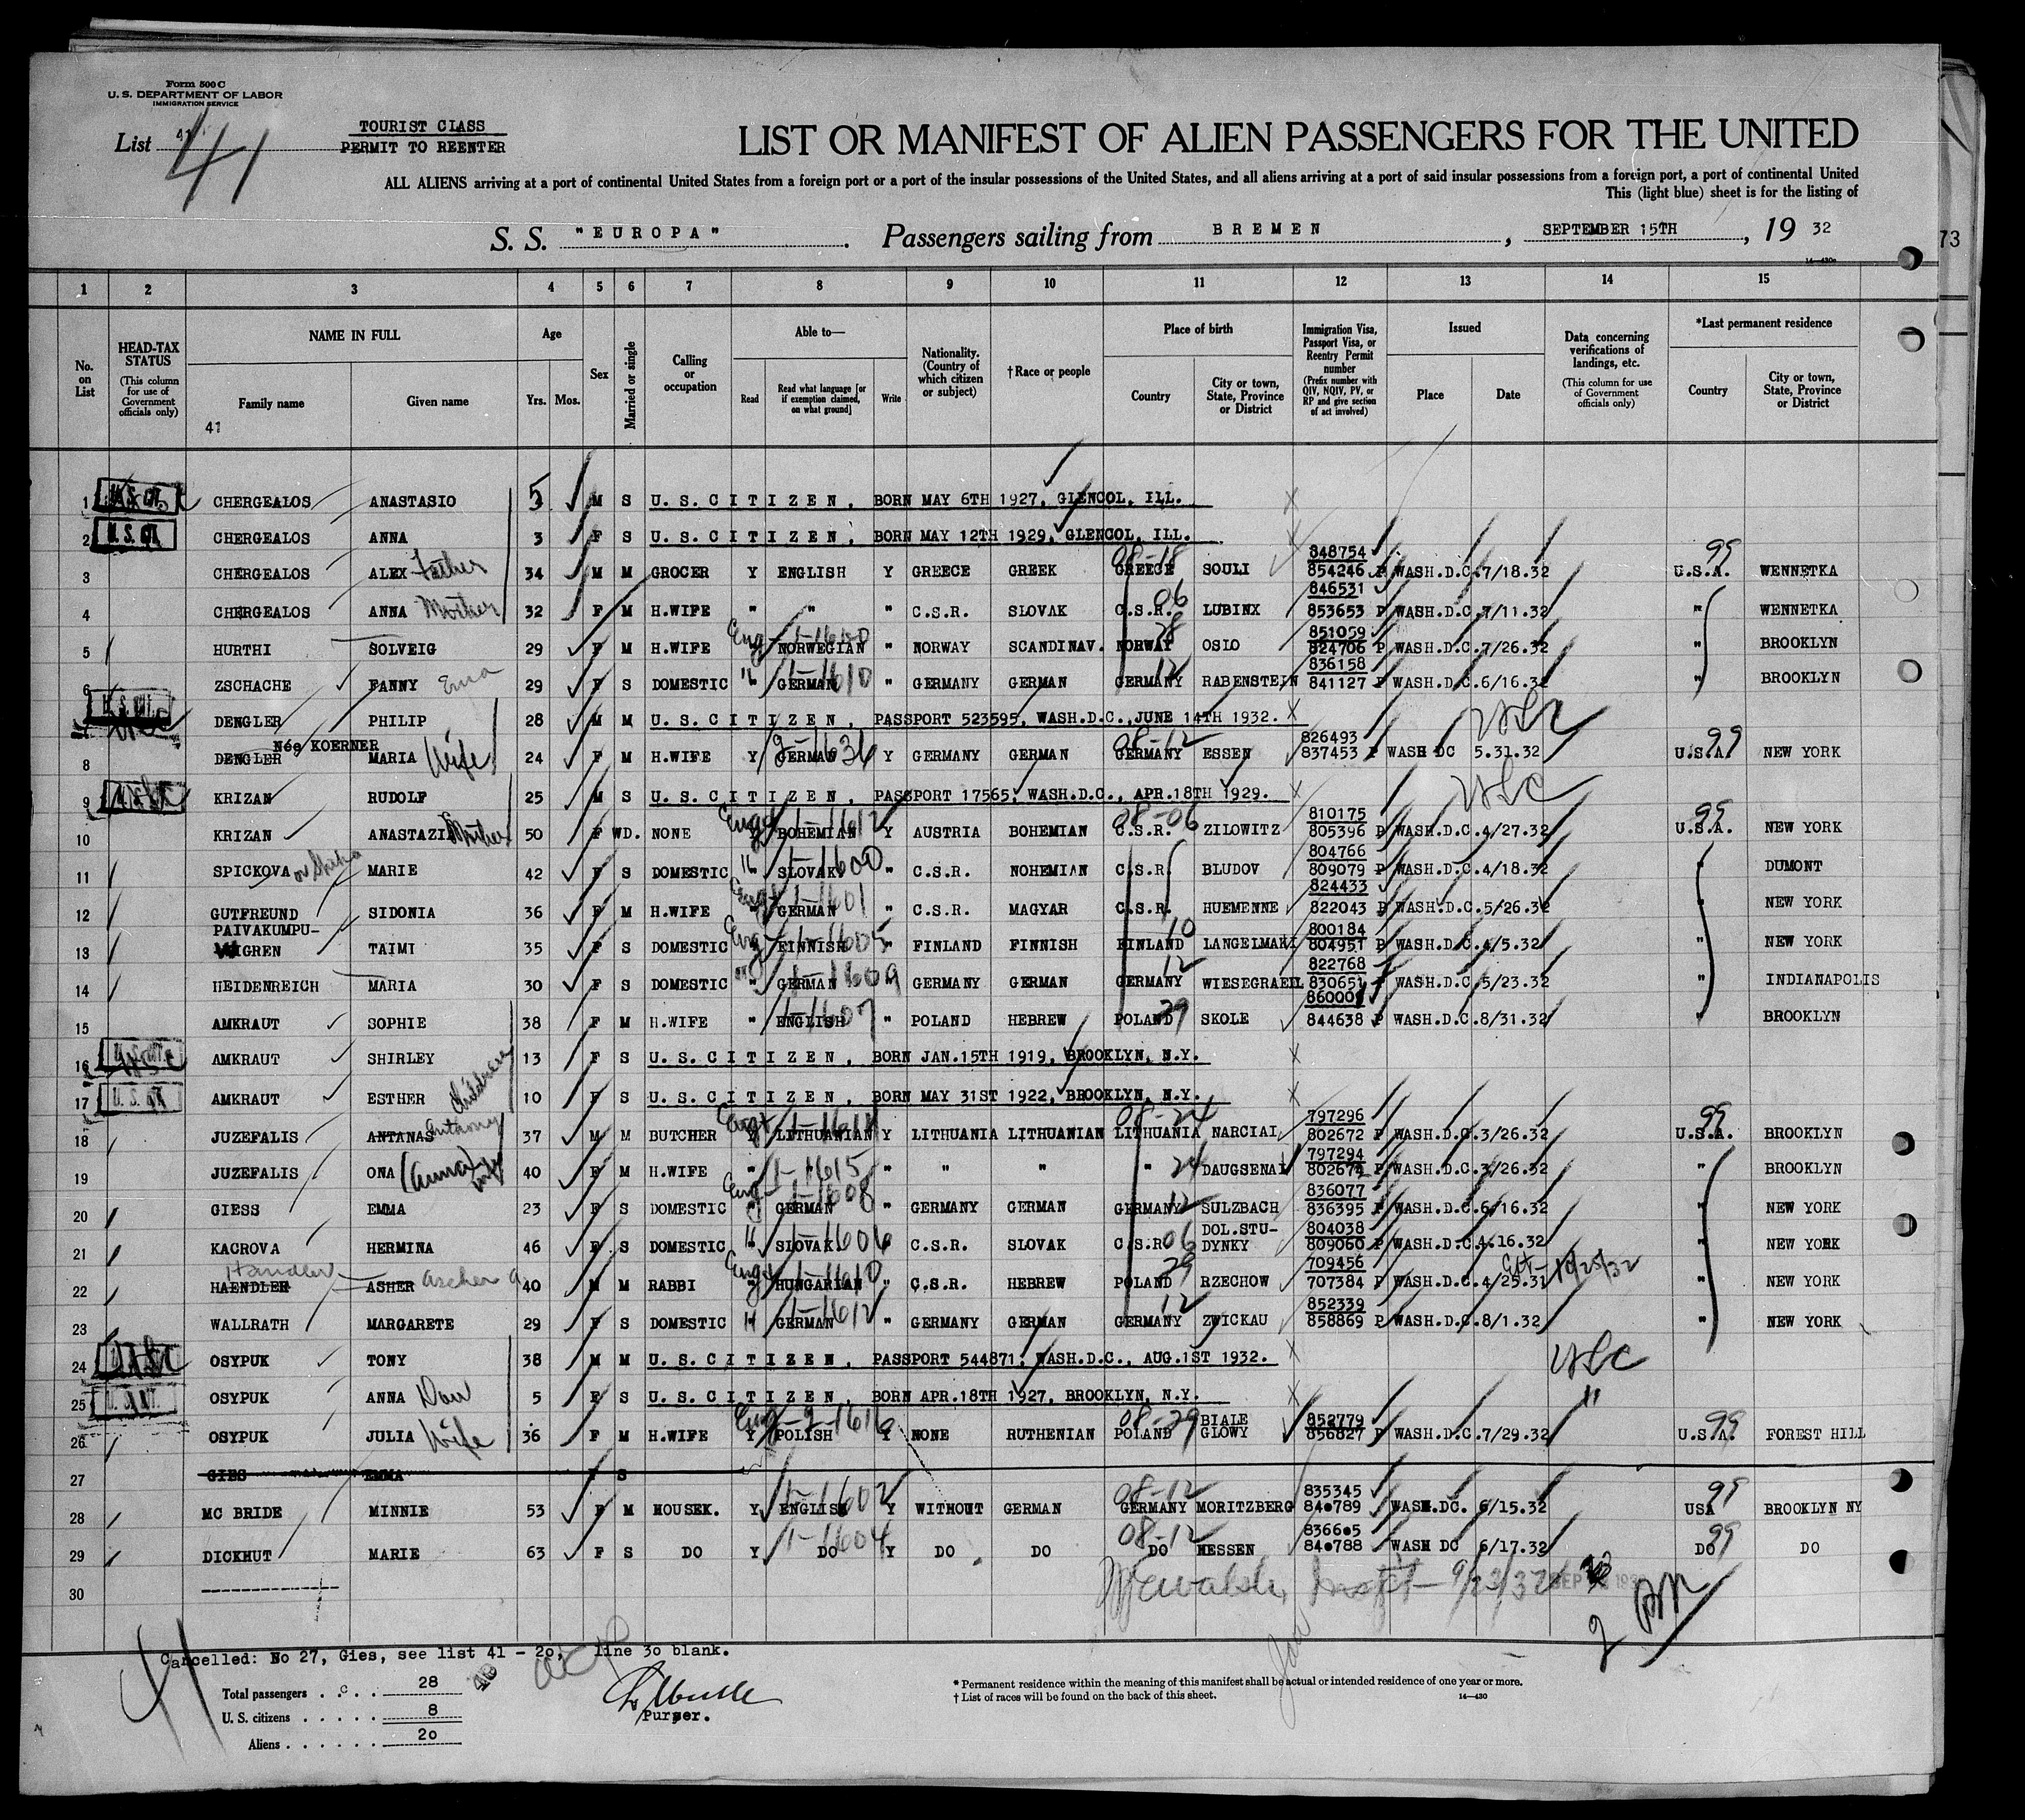 Form 500 C
U. S. DEPARTMENT OF LABOR
IMMIGRATION SERVICE
List 41
41
TOURIST CLASS
PERMIT TO REENTER
LIST OR MANIFEST OF ALIEN PASSENGERS FOR THE UNITED
ALL ALIENS arriving at a port of continental United States from a foreign port or a port of the insular possessions of the United States, and all aliens arriving at a port of said insular possessions from a foreign port, a port of continental United
This (light blue) sheet is for the listing of
S. S. "EUROPA" . Passengers sailing from BREMEN , SEPTEMBER 15TH , 19 32
73
14—430a
1 2 3 4 5 6 7 8 9 10 11 12 13 14 15
No. on List
HEAD-TAX STATUS (This column for use of Government officials only)
NAME IN FULL
Family name Given name
41
Age
Yrs. Mos.
Sex
Married or single
Calling or occupation
Able to—
Read Read what language [or if exemption claimed, on what ground] Write
Nationality. (Country of which citizen or subject)
†Race or people
Place of birth
Country City or town, State, Province or District
Immigration Visa, Passport Visa, or Reentry Permit number (Prefix number with QIV, NQIV, PV, or RP and give section of act involved)
Issued
Place Date
Data concerning verifications of landings, etc. (This column for use of Government officials only)
*Last permanent residence
Country City or town, State, Province or District
1 U.S. CIT. CHERGEALOS ANASTASIO 5 M S U.S.CITIZEN, BORN MAY 6TH 1927, GLENCOL, ILL.
2 U.S. CIT. CHERGEALOS ANNA 3 F S U.S.CITIZEN, BORN MAY 12TH 1929, GLENCOL, ILL.
08-18 848754 99
3 CHERGEALOS ALEX Father 34 M M GROCER Y ENGLISH Y GREECE GREEK GREECE SOULI 854246 P WASH.D.C. 7/18.32 U.S.A. WENNETKA
06 846531
4 CHERGEALOS ANNA Mother 32 F M H.WIFE " " " C.S.R. SLOVAK C.S.R. LUBINX 853653 P WASH.D.C. 7/11.32 " WENNETKA
Eng 28 851059
5 HURTHI SOLVEIG 29 F M H.WIFE NORWEGIAN " NORWAY SCANDINAV. NORWAY OSLO 824706 P WASH.D.C. 7/26.32 " BROOKLYN
" 1-1610 12 836158
6 ZSCHACHE FANNY Erna 29 F S DOMESTIC " GERMAN " GERMANY GERMAN GERMANY RABENSTEIN 841127 P WASH.D.C. 6/16.32 " BROOKLYN
U.S. CIT. DENGLER PHILIP 28 M M U.S.CITIZEN, PASSPORT 523595, WASH.D.C., JUNE 14TH 1932. USC
Née KOERNER 08-12 826493 99
8 DENGLER MARIA Wife 24 F M H.WIFE Y GERMAN Y GERMANY GERMAN GERMANY ESSEN 837453 P WASH DC 5.31.32 U.S.A. NEW YORK
9 KRIZAN RUDOLF 25 M S U.S.CITIZEN, PASSPORT 17565, WASH.D.C., APR.18TH 1929. USC
Eng 1-1612 08-06 810175 99
10 KRIZAN ANASTAZIA Mother 50 F WD. NONE Y BOHEMIAN Y AUSTRIA BOHEMIAN C.S.R. ZILOWITZ 805396 P WASH.D.C. 4/27.32 U.S.A. NEW YORK
" 1-1600 804766
11 SPICKOVA MARIE 42 F S DOMESTIC " SLOVAK " C.S.R. NOHEMIAN C.S.R. BLUDOV 809079 P WASH.D.C. 4/18.32 " DUMONT
Eng 1-1601 824433
12 GUTFREUND SIDONIA 36 F M H.WIFE " GERMAN " C.S.R. MAGYAR C.S.R. HUEMENNE 822043 P WASH.D.C. 5/26.32 " NEW YORK
PAIVAKUMPU- Eng 1-1605 10 800184
13 IGREN TAIMI 35 F S DOMESTIC " FINNISH " FINLAND FINNISH FINLAND LANGELMAKI 804951 P WASH.D.C. 4/5.32 " NEW YORK
" 1-1609 12 822768
14 HEIDENREICH MARIA 30 F S DOMESTIC " GERMAN " GERMANY GERMAN GERMANY WIESEGRAEIL 830651 P WASH.D.C. 5/23.32 " INDIANAPOLIS
1-1607 29 860001
15 AMKRAUT SOPHIE 38 F M H.WIFE " ENGLISH " POLAND HEBREW POLAND SKOLE 844638 P WASH.D.C. 8/31.32 " BROOKLYN
16 AMKRAUT SHIRLEY 13 F S U.S.CITIZEN, BORN JAN.15TH 1919, BROOKLYN, N.Y.
17 U.S. CIT. AMKRAUT ESTHER Children 10 F S U.S.CITIZEN, BORN MAY 31ST 1922, BROOKLYN, N.Y.
Eng 08-24 797296 99
18 JUZEFALIS ANTANAS Anthony 37 M M BUTCHER Y LITHUANIAN Y LITHUANIA LITHUANIAN LITHUANIA NARCIAI 802672 P WASH.D.C. 3/26.32 U.S.A. BROOKLYN
1-1615 24 797294
19 JUZEFALIS ONA (Anna) wife 40 F M H.WIFE " " " " " " DAUGSENAI 802671 P WASH.D.C. 3/26.32 " BROOKLYN
Eng 1-1608 12 836077
20 GIESS EMMA 23 F S DOMESTIC " GERMAN " GERMANY GERMAN GERMANY SULZBACH 836395 P WASH.D.C. 6/16.32 " NEW YORK
" 1-1606 06 DOL.STU- 804038
21 KACROVA HERMINA 46 F S DOMESTIC " SLOVAK " C.S.R. SLOVAK C.S.R. DYNKY 809060 P WASH.D.C. 4.16.32 " NEW YORK
Handler Ascher Eng 1-1610 29 709456 Ext-10/25/32
22 HAENDLER ASHER 40 M M RABBI " HUNGARIAN " C.S.R. HEBREW POLAND RZECHOW 707384 P WASH.D.C. 4/25.31 " NEW YORK
1-1612 12 852339
23 WALLRATH MARGARETE 29 F S DOMESTIC " GERMAN " GERMANY GERMAN GERMANY ZWICKAU 858869 P WASH.D.C. 8/1.32 " NEW YORK
24 OSYPUK TONY 38 M M U.S.CITIZEN, PASSPORT 544871, WASH.D.C., AUG.1ST 1932. USC
25 U.S. CIT. OSYPUK ANNA Dau 5 F S U.S.CITIZEN, BORN APR.18TH 1927, BROOKLYN, N.Y. "
Eng 2-1616 08-29 BIALE 852779 99
26 OSYPUK JULIA Wife 36 F M H.WIFE Y POLISH Y NONE RUTHENIAN POLAND GLOWY 856827 P WASH.D.C. 7/29.32 U.S.A. FOREST HILL
27 GIES EMMA F S
1-1602 08-12 835345 99
28 MC BRIDE MINNIE 53 F M HOUSEK. Y ENGLISH Y WITHOUT GERMAN GERMANY MORITZBERG 840789 WASH.DC. 6/15.32 USA BROOKLYN NY
1-1604 08-12 836605 99
29 DICKHUT MARIE 63 F S DO Y DO Y DO DO DO HESSEN 840788 WASH DC 6/17.32 DO DO
30 --------------- Walsh, Inspt- 9/23/32
Cancelled: No 27, Gies, see list 41 - 20, line 30 blank.
41
Total passengers . . . . 28
U. S. citizens . . . . . 8
Aliens . . . . . . 20
Purser.
* Permanent residence within the meaning of this manifest shall be actual or intended residence of one year or more.
† List of races will be found on the back of this sheet. 14—430